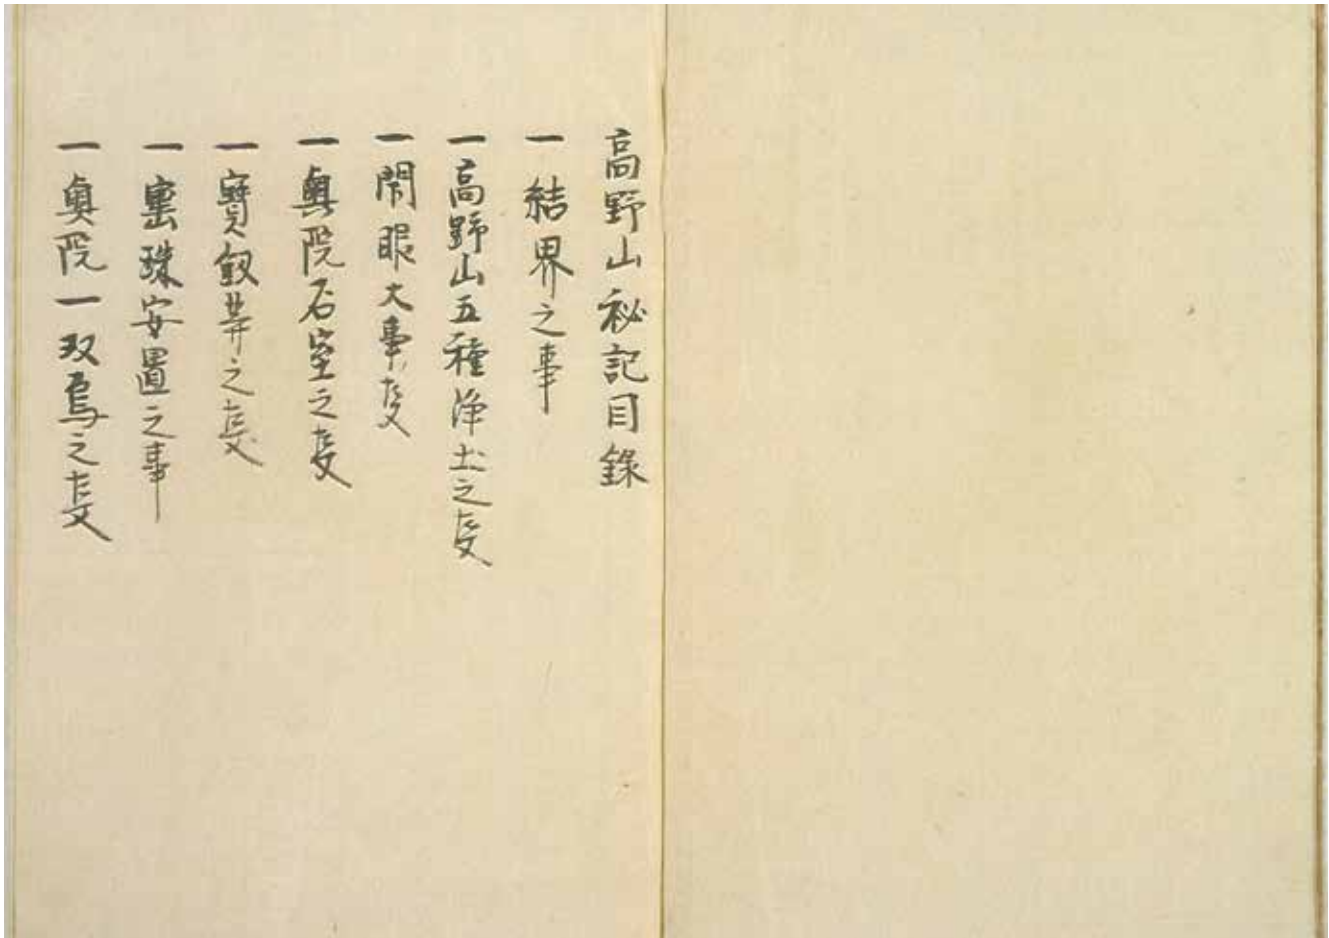 高野山秘記目録
一 結界之事
一高野山五種浄土之㕝
一開眼大事㕝
一奥院石室之㕝
一寶釼等之㕝
一寳珠安置之事
一奥院一双烏之㕝